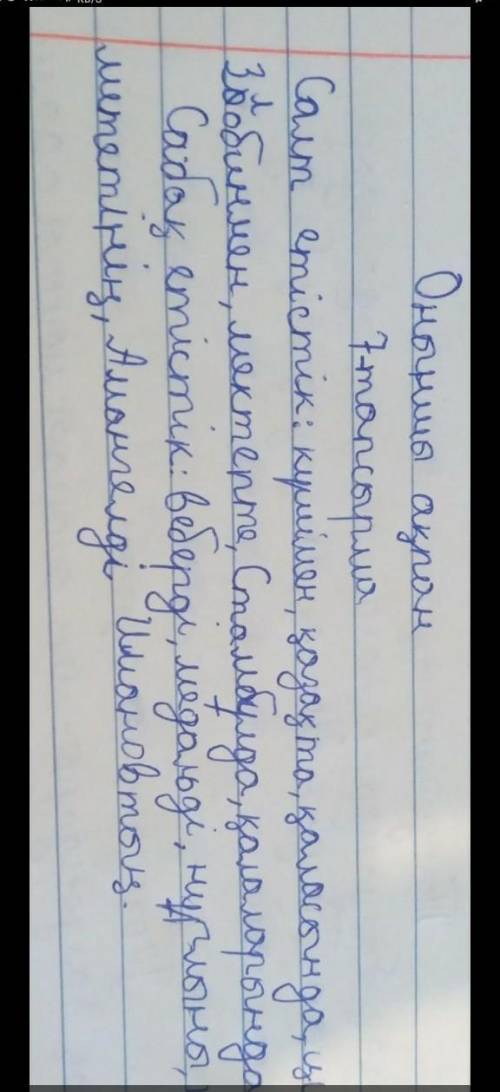 Оныншы ақпан
7-тапсырма
Салт етістік: күлкімен, қазақта, қаласында,
Зәлбинмен, мектепте, Стамбулда, қалаларында
Сабақ етістік: веберді, медальді, нұғлыны,
мететінің, Амангелді Имановтың.